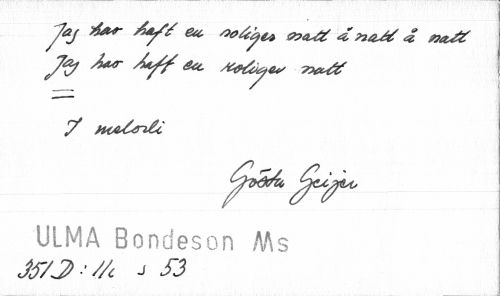 Jag har haft en roliger natt å natt å natt
Jag har haft en roliger natt
=
I melodi
Gösta Geijer
ULMA Bondeson Ms
351 D: 11c s 53